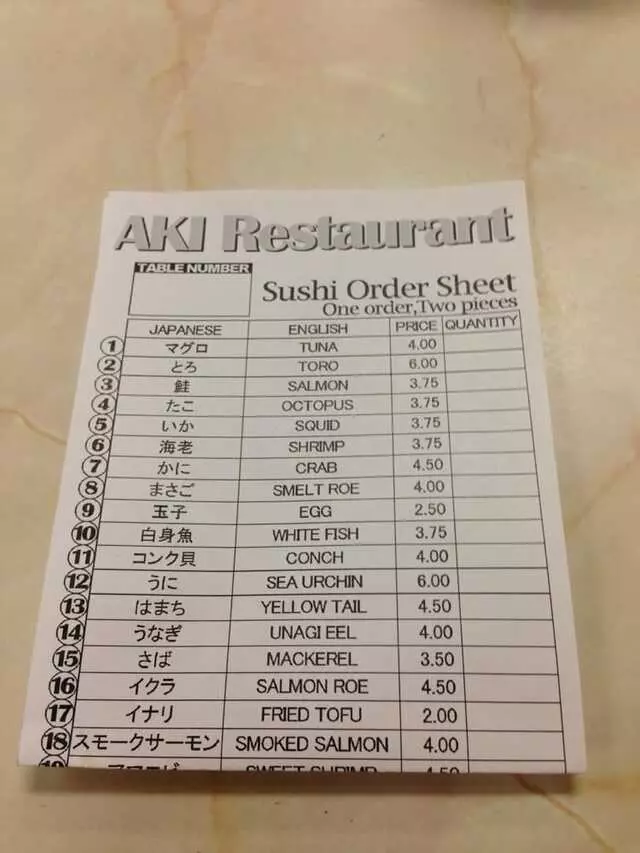 AKI Restaurant
TABLE NUMBER
Sushi Order Sheet
One order,Two pieces
JAPANESE ENGLISH PRICE QUANTITY
1 マグロ TUNA 4.00
2 とろ TORO 6.00
3 鮭 SALMON 3.75
4 たこ OCTOPUS 3.75
5 いか SQUID 3.75
6 海老 SHRIMP 3.75
7 かに CRAB 4.50
8 まさご SMELT ROE 4.00
9 玉子 EGG 2.50
10 白身魚 WHITE FISH 3.75
11 コンク貝 CONCH 4.00
12 うに SEA URCHIN 6.00
13 はまち YELLOW TAIL 4.50
14 うなぎ UNAGI EEL 4.00
15 さば MACKEREL 3.50
16 イクラ SALMON ROE 4.50
17 イナリ FRIED TOFU 2.00
18 スモークサーモン SMOKED SALMON 4.00
19 SWEET SHRIMP 4.50